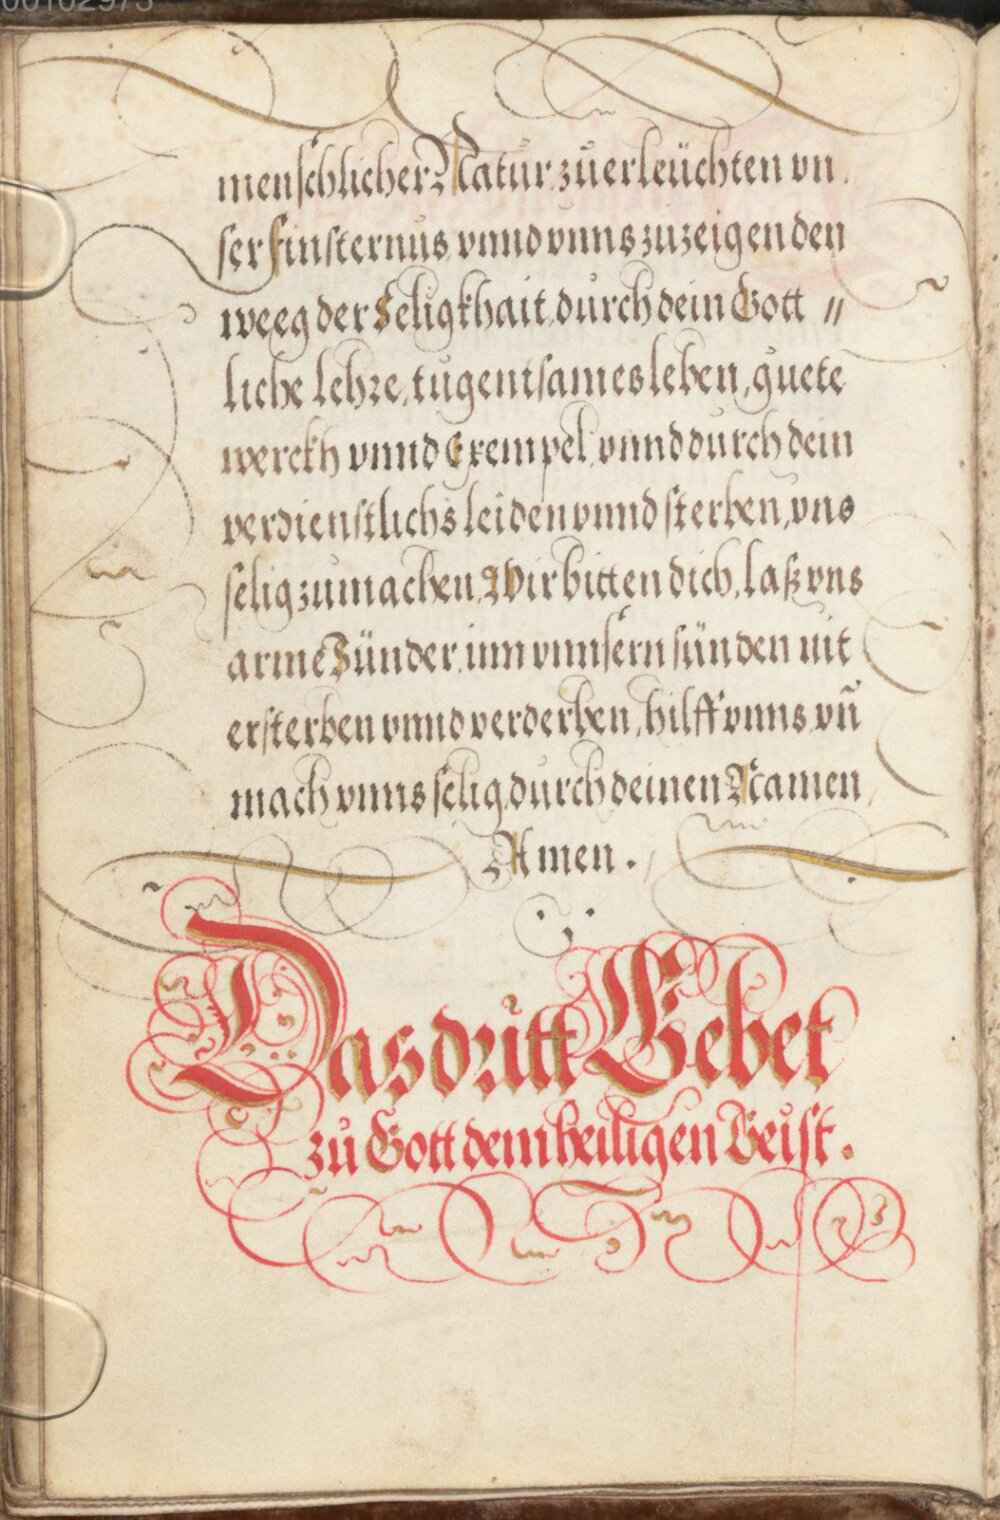 00102973
menschlicher Natur, zuerleüchten vn
ser finsternus, vnnd vnns zuzeigen den
weeg der Seligkhait, durch dein Gott //
liche lehre, tugentsames leben, guete
werckh vnnd Exempel, vnnd durch dein
verdienstlichs leiden vnnd sterben, vns
selig zumachen, Wir bitten dich, laß vns
arme Sünder, inn vnnsern sünden nit
ersterben vnnd verderben, hilff vnns, vn̄
mach vnns selig, durch deinen Namen,
Amen.
Das dritt Gebet
zu Gott dem heiligen Geist.